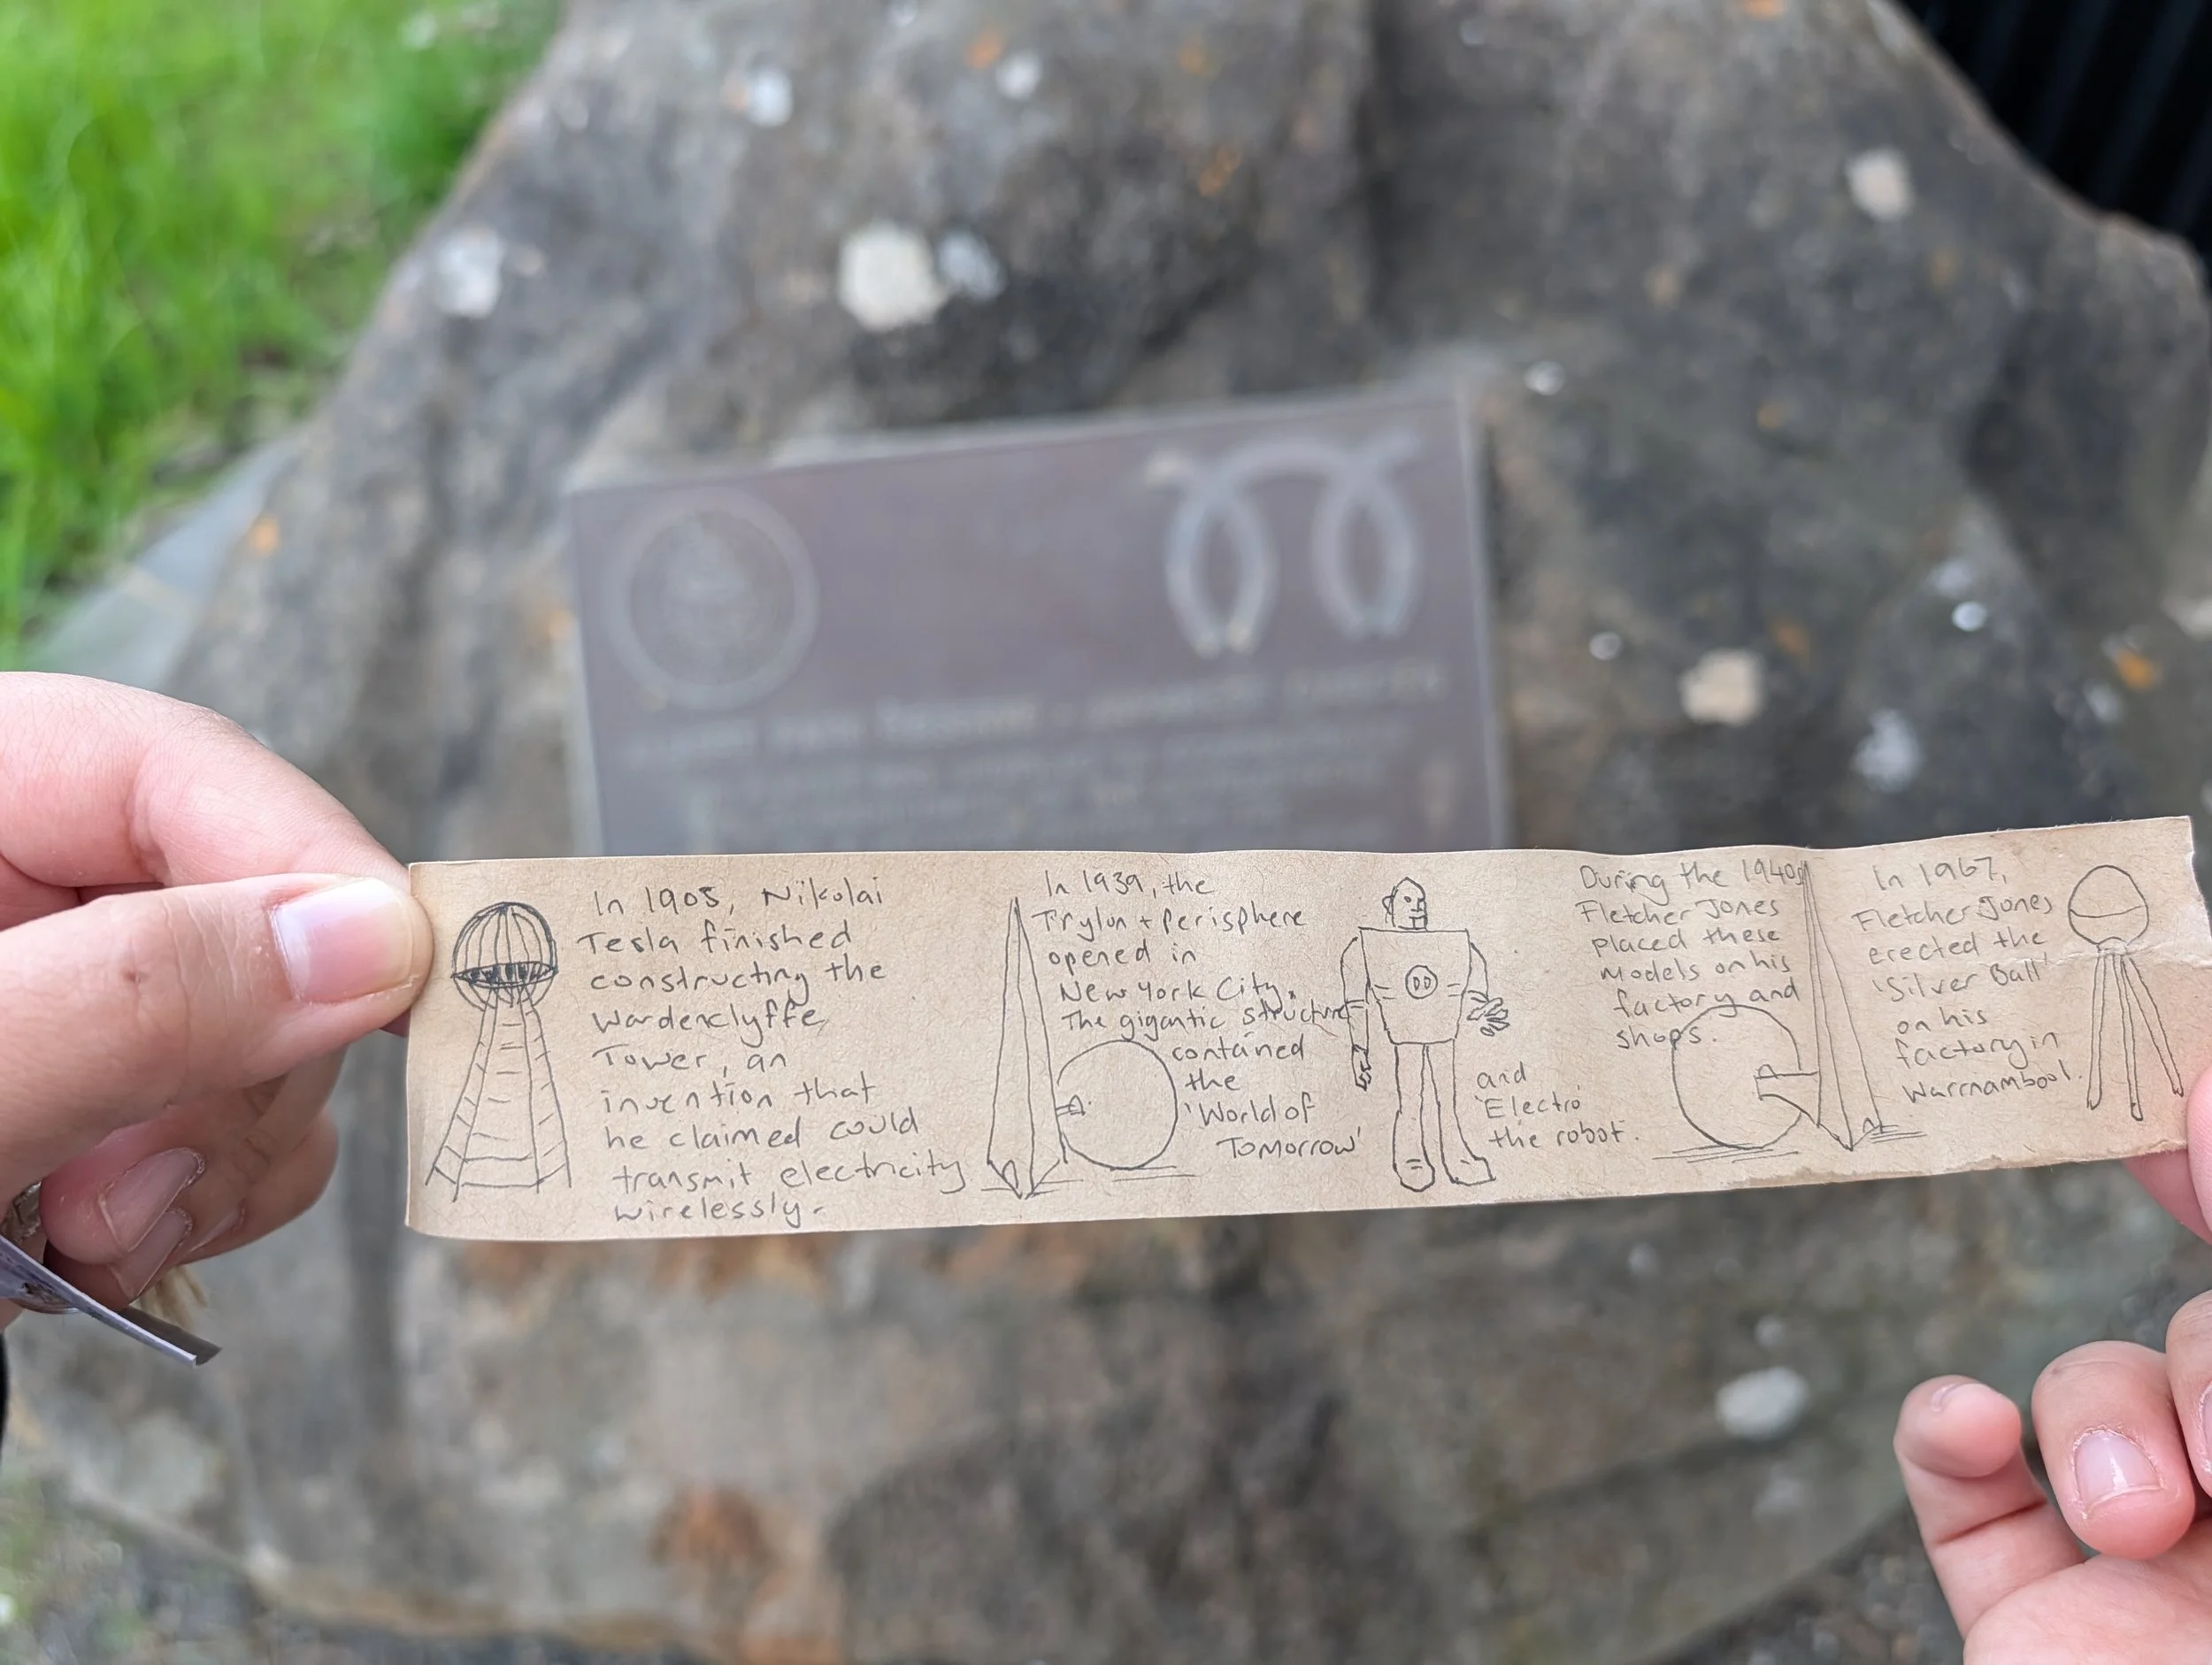 In 1905, Nikolai
Tesla finished
constructing the
Wardenclyffe
Tower, an
invention that
he claimed could
transmit electricity
wirelessly.
In 1939, the
Trylon + Perisphere
opened in
New York City.
The gigantic structure
contained
the
'World of
Tomorrow'
and
'Electro'
the robot.
During the 1940s
Fletcher Jones
placed these
models on his
factory and
shops.
In 1967,
Fletcher Jones
erected the
'Silver Ball'
on his
factory in
Warrnambool.